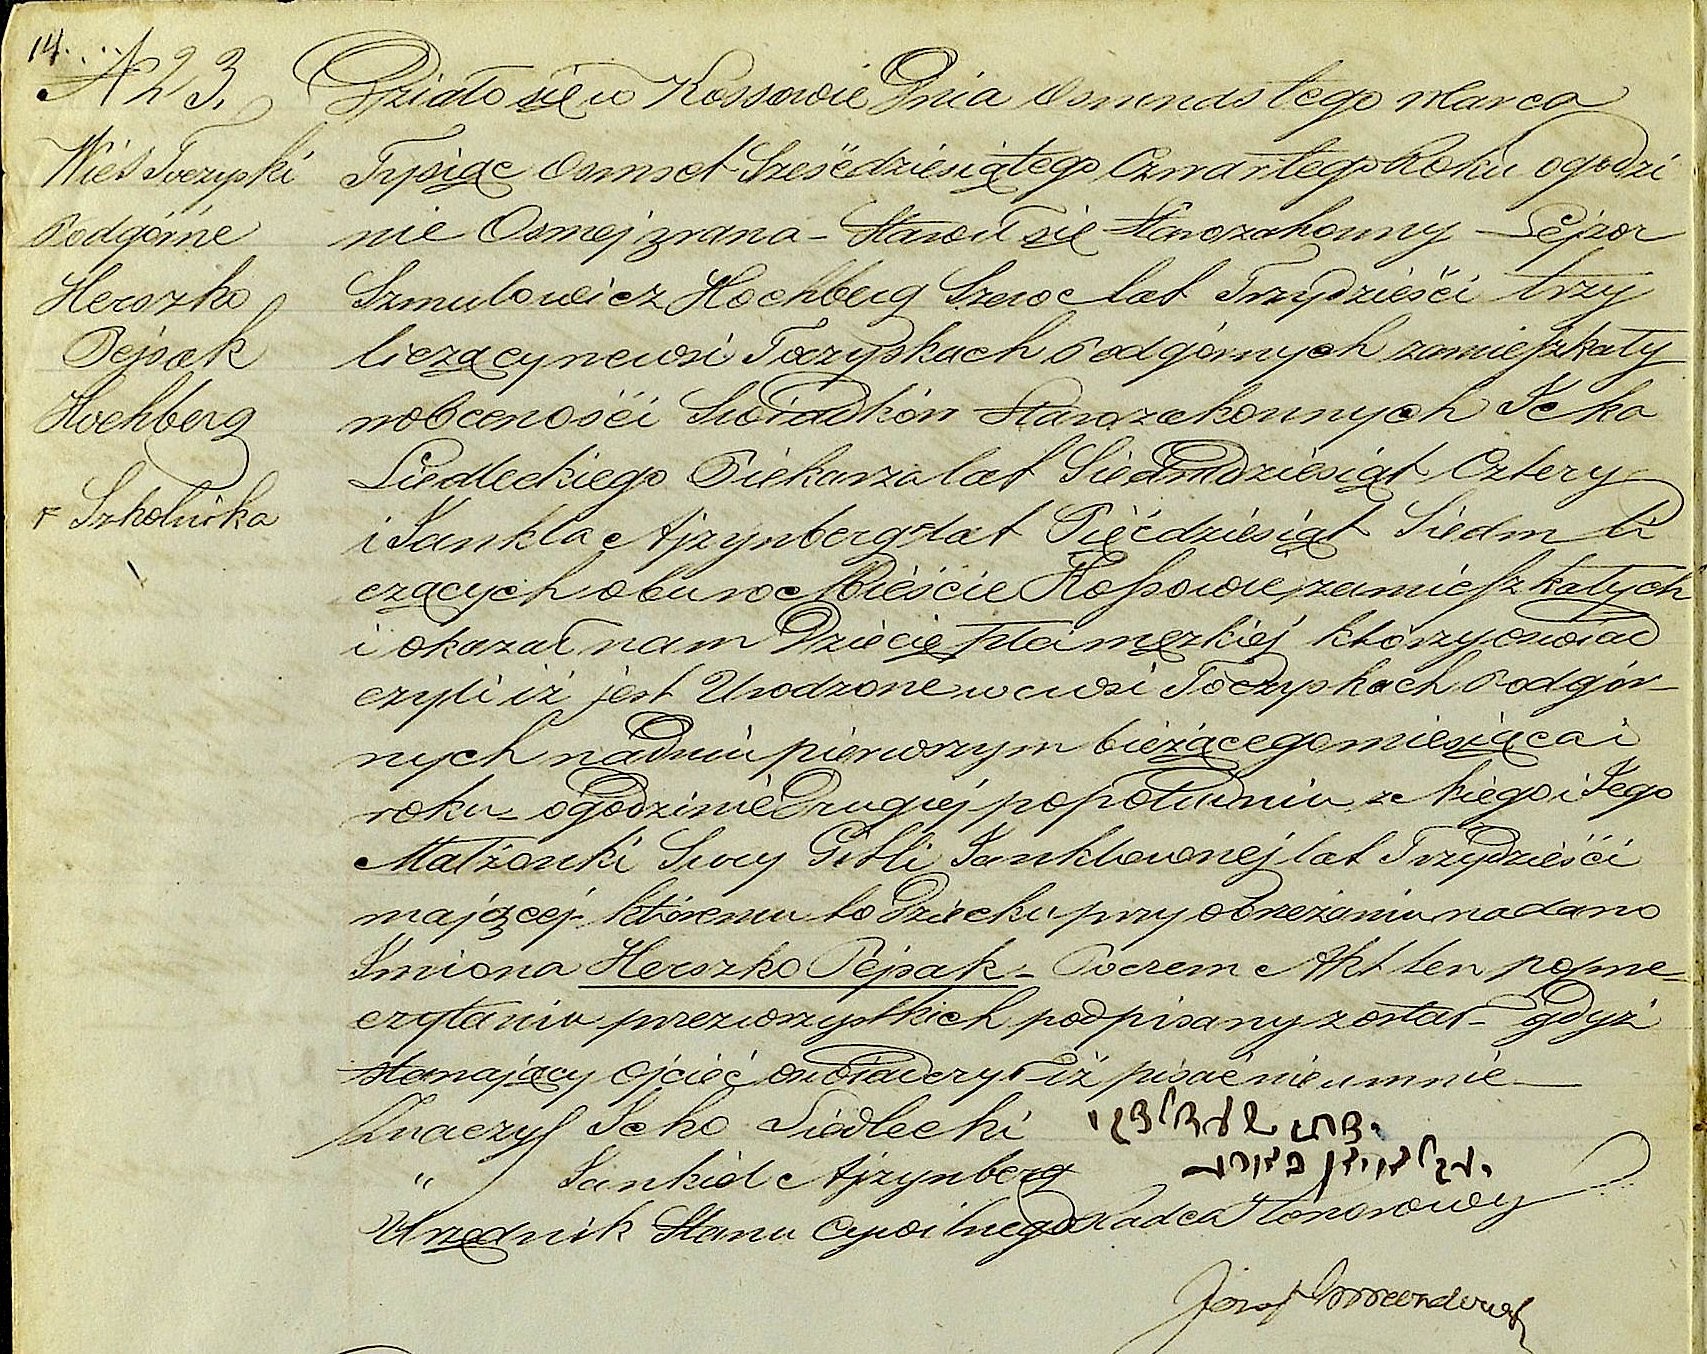 14.
N 23.
Wieś Toczyski
Podgórne
Herszko
Pejsak
Hochberg
r Szkolnika
Działo się w Kossowie Dnia Osmnastego Marca
Tysiąc Osmset Sześćdziesiątego Czwartego Roku o godzi
nie Osmej zrana - Stawił się Starozakonny Lejzor
Szmulowicz Hochberg Szewc lat Trzydzieści trzy
liczący we wsi Toczyskach Podgórnych zamieszkały
w obecności Swiadków Starozakonnych Icka
Siedleckiego Piekarza lat Siedmdziesiąt Cztery
i Jankla Ajzynberg lat Pięćdziesiąt Siedm li
czących obu w Mieście Kossowie zamieszkałych
i okazał nam Dziecię płci męzkiej którzy oswiad
czyli iż jest Urodzone w wsi Toczyskach Podgór-
nych na dniu pierwszym bieżącego miesiąca i
roku o godzinie Drugiej popołudniu z niego i Jego
Małżonki Sury Gitli Janklowonej lat Trzydzieści
mającej - któremu to Dziecku przy obrzezaniu nadano
Imiona Herszko Pejsak - Poczem Akt ten po prze-
czytaniu przez wszystkich podpisany został - gdyż
stanający ojciec oswiadczył iż pisać nie umie
Znaczy Icko Siedlecki
" Jankiel Ajzynberg
Urzędnik Stanu Cywilnego Radca Honorowy
Józef